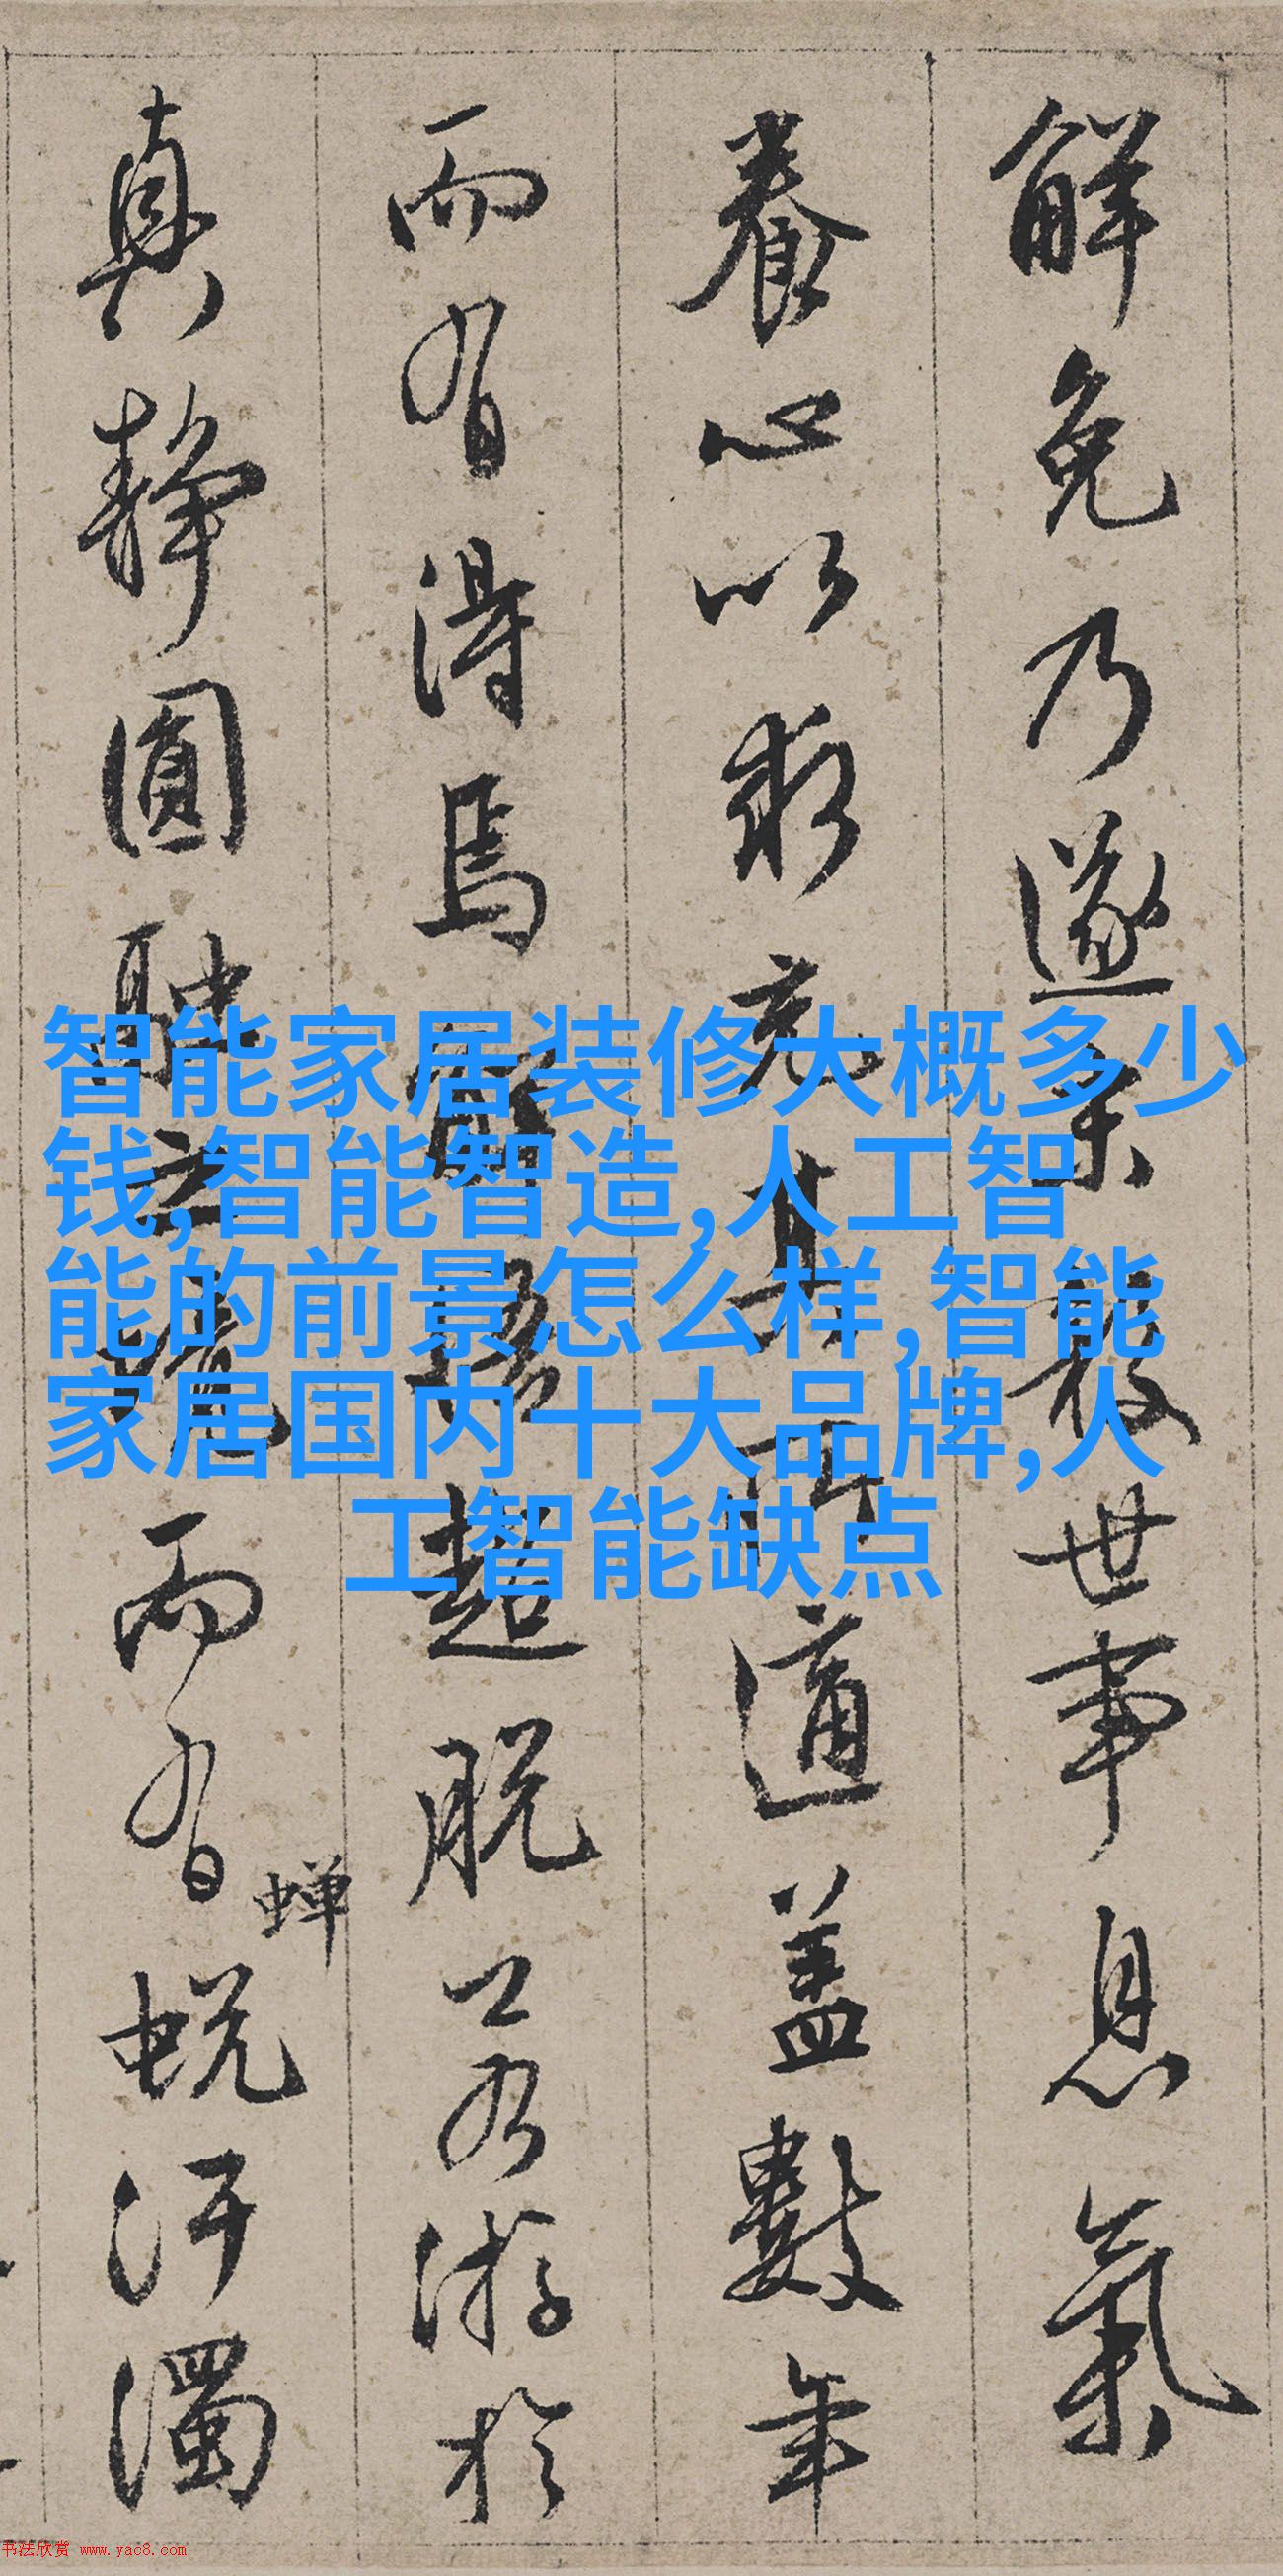 解免乃遂世事息氣
養心以求充其所適蓋數年
而有得焉悟超脫游於
真靜圓之境而有蟬蛻汙濁
智能家居装修大概多少
钱,智能智造,人工智
能的前景怎么样,智能
家居国内十大品牌,人
工智能缺点
书法欣赏 www.yac8.com